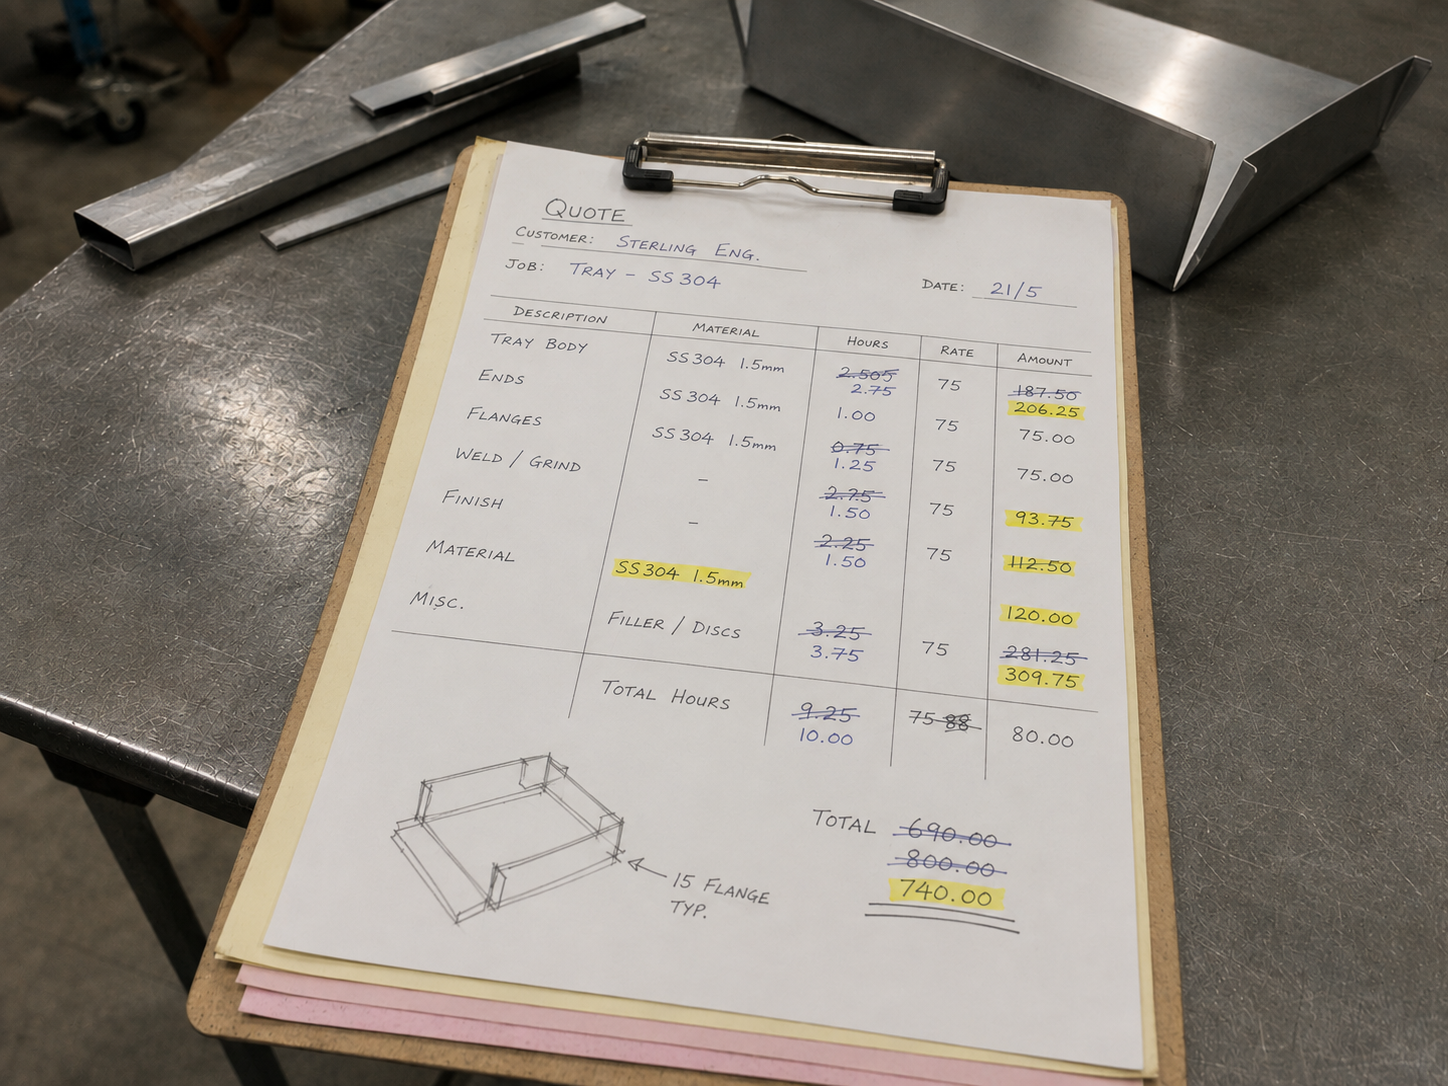 QUOTE
CUSTOMER: STERLING ENG.
JOB: TRAY - SS304
DATE: 21/5
DESCRIPTION MATERIAL HOURS RATE AMOUNT
TRAY BODY SS304 1.5mm 2.505 75 187.50
2.75 206.25
ENDS SS304 1.5mm 1.00 75 75.00
FLANGES SS304 1.5mm 0.75 75 75.00
1.25
WELD / GRIND - 2.75 75 93.75
1.50
FINISH - 2.25 75 112.50
1.50
MATERIAL SS304 1.5mm 120.00
MISC. FILLER / DISCS 3.25 75 281.25
3.75 309.75
TOTAL HOURS 9.25 75 88 80.00
10.00
TOTAL 690.00
800.00
740.00
15 FLANGE
TYP.